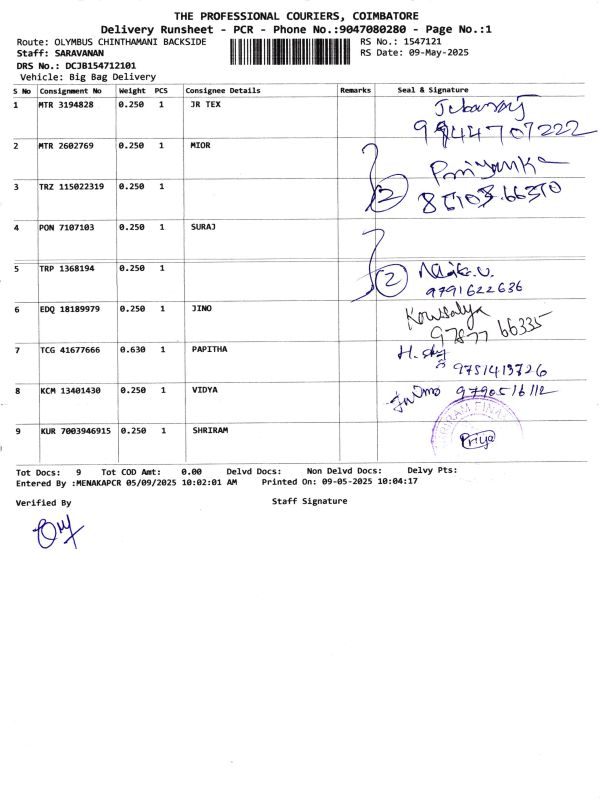 THE PROFESSIONAL COURIERS, COIMBATORE
Delivery Runsheet - PCR - Phone No.:9047080280 - Page No.:1
Route: OLYMBUS CHINTHAMANI BACKSIDE RS No.: 1547121
Staff: SARAVANAN RS Date: 09-May-2025
DRS No.: DCJB154712101
Vehicle: Big Bag Delivery
S No Consignment No Weight PCS Consignee Details Remarks Seal & Signature
1 MTR 3194828 0.250 1 JR TEX
2 MTR 2602769 0.250 1 MIOR Priyanka
3 TRZ 115022319 0.250 1 2
4 PON 7107103 0.250 1 SURAJ
5 TRP 1368194 0.250 1 2
9791622636
6 EDQ 18189979 0.250 1 JINO Kowsalya
97877 66335
7 TCG 41677666 0.630 1 PAPITHA
9751413726
8 KCM 13401430 0.250 1 VIDYA 9790516112
9 KUR 7003946915 0.250 1 SHRIRAM Priya
Tot Docs: 9 Tot COD Amt: 0.00 Delvd Docs: Non Delvd Docs: Delvy Pts:
Entered By :MENAKAPCR 05/09/2025 10:02:01 AM Printed On: 09-05-2025 10:04:17
Verified By Staff Signature